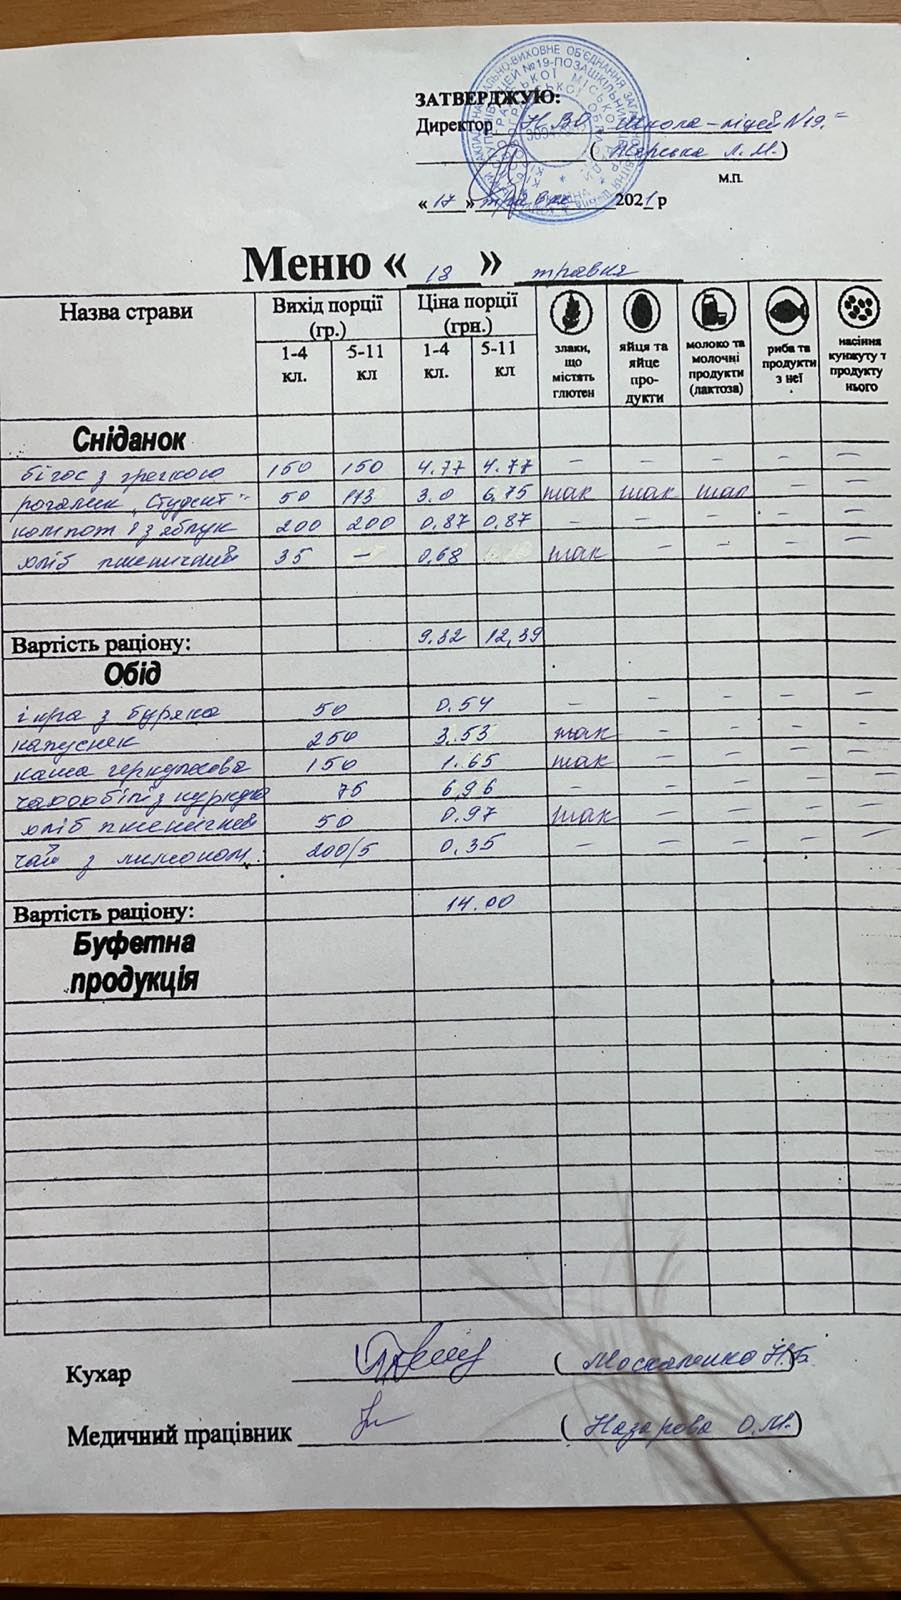 ЗАТВЕРДЖУЮ:
Директор НВО Школа-ліцей №19
( Л.М.)
М.П.
« 17 » травня 2021 р
Меню « 18 » травня
Назва страви Вихід порції (гр.) Ціна порції (грн.) злаки, що містять глютен яйця та яйце про-дукти молоко та молочні продукти (лактоза) риба та продукти з неї насіння кунжуту т продукту нього
1-4 кл. 5-11 кл 1-4 кл. 5-11 кл
Сніданок
бігос з гречкою 150 150 4.77 4.77 – – – – –
рогалик „Студент" 50 113 3.0 6,75 так так так – –
компот з яблук 200 200 0,87 0,87 – – – – –
хліб пшеничний 35 – 0,68 так – – – –
Вартість раціону: 9.32 12,39
Обід
ікра з буряка 50 0.54 – – – – –
капусняк 250 3.53 так – – – –
каша геркулесова 150 1.65 так – – – –
75 6,96 – – – – –
хліб пшеничний 50 0.97 так – – – –
чай з лимоном 200/5 0.35 – – – – –
Вартість раціону: 14.00
Буфетна продукція
Кухар ( Москаленко Н.Б.)
Медичний працівник ( Назарова О.М.)